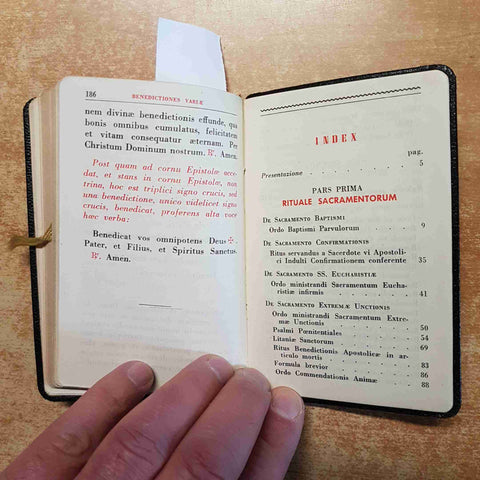 186 BENEDICTIONES VARIÆ
nem divinæ benedictionis effunde, qua
bonis omnibus cumulatus, felicitatem
et vitam consequatur æternam. Per
Christum Dominum nostrum. ℟. Amen.
Post quam ad cornu Epistolæ acce-
dat, et stans in cornu Epistolæ, non
trina, hoc est triplici signo crucis, sed
una benedictione, unico videlicet signo
crucis, benedicat, proferens alta voce
hæc verba:
Benedicat vos omnipotens Deus ✠
Pater, et Filius, et Spiritus Sanctus.
℟. Amen.
INDEX
pag.
Presentazione . . . . . . . . 5
PARS PRIMA
RITUALE SACRAMENTORUM
De Sacramento Baptismi
Ordo Baptismi Parvulorum . . . 9
De Sacramento Confirmationis
Ritus servandus a Sacerdote vi Apostoli-
ci Indulti Confirmationem conferente 35
De Sacramento SS. Eucharistiæ
Ordo ministrandi Sacramentum Eucha-
ristiæ infirmis . . . . . . . 41
De Sacramento Extremæ Unctionis
Ordo ministrandi Sacramentum Extre-
mæ Unctionis . . . . . . . 50
Psalmi Pœnitentiales . . . . . 54
Litaniæ Sanctorum . . . . . . 69
Ritus Benedictionis Apostolicæ in ar-
ticulo mortis . . . . . . . 83
Formula brevior . . . . . . . 86
Ordo Commendationis Animæ . . . 88